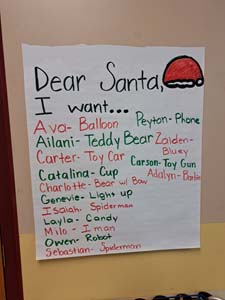 Dear Santa,
I want...
Ava- Balloon
Peyton- Phone
Ailani- Teddy Bear
Zaiden-
Bluey
Carter- Toy Car
Carson- Toy Gun
Catalina- Cup
Adalyn- Barbie
Charlotte- Bear w/ Bow
Genevie- Light up
Isaiah- Spiderman
Layla- Candy
Milo- I man
Owen- Robot
Sebastian- Spiderman